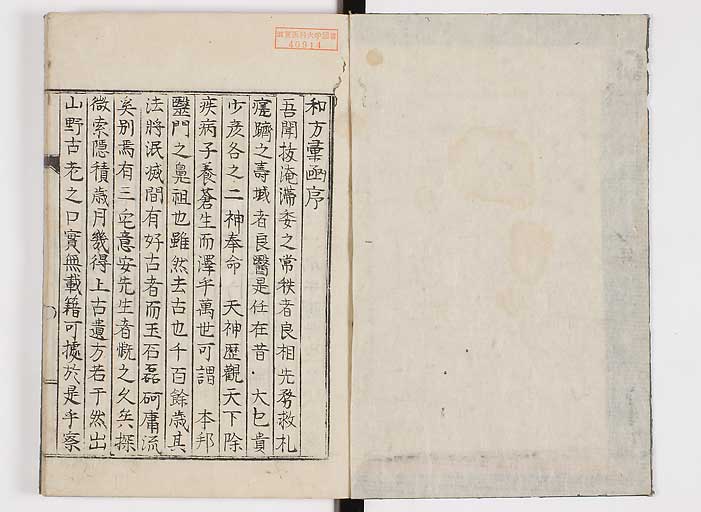 滋賀医科大学図書
40914
和方彙函序
吾聞抜淹滞委之常秩者良相先務救札
瘥躋之壽域者良醫是任在昔 大己貴
少彦各之二神奉命 天神歴觀天下除
疾病子養蒼生而澤乎萬世可謂 本邦
毉門之鼻祖也雖然去古也千百餘歳其
法將泯滅間有好古者而玉石磊砢庸流
矣別焉有三宅意安先生者慨之久矣探
微索隠積歳月幾得上古遺方若干然出
山野古老之口實無載籍可據於是乎察